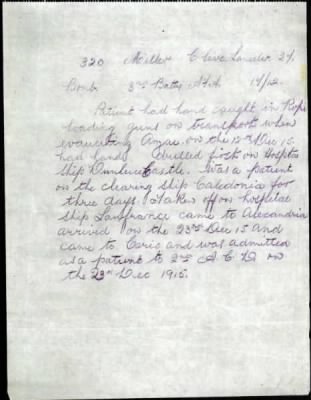 320 Miller Cleve Lander 24.
Bomb. 3rd Batty A.F.A. 14/12.
Patient had hand caught in Rope
loading guns on transport when
evacuating Anzac on the 12th Dec 15.
had hand first on Hospital
Ship Dunluce Castle. Was a patient
on the clearing ship Caledonia for
three days. Taken off on hospital
ship Lanfrance came to Alexandria
arrived on the 23rd Dec 15 and
came to Cairo and was admitted
as a patient to 2nd A C D on
the 23rd Dec 1915.